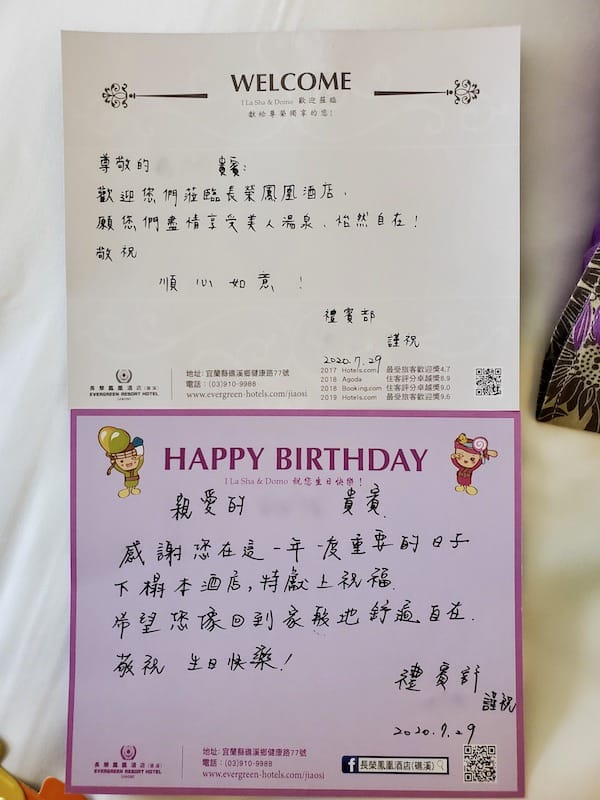 WELCOME
I La Sha & Domo 歡迎蒞臨
獻給尊榮獨享的您!
尊敬的 貴賓:
歡迎您們蒞臨長榮鳳凰酒店、
願您們盡情享受美人湯泉、怡然自在!
敬祝
順心如意!
禮賓部
謹祝
2020.7.29
2017 Hotels.com 最受旅客歡迎獎4.7
2018 Agoda 住客評分卓越獎8.9
2018 Booking.com 住客評分卓越獎9.0
2019 Hotels.com 最受旅客歡迎獎9.6
長榮鳳凰酒店(礁溪)
EVERGREEN RESORT HOTEL
(JIAOSI)
地址: 宜蘭縣礁溪鄉健康路77號
電話 : (03)910-9988
www.evergreen-hotels.com/jiaosi
HAPPY BIRTHDAY
I La Sha & Domo 祝您生日快樂!
親愛的 貴賓
感謝您在這一年一度重要的日子
下榻本酒店,特獻上祝福.
希望您像回到家般地舒適自在.
敬祝 生日快樂!
禮賓部
謹祝
2020.7.29
長榮鳳凰酒店(礁溪)
EVERGREEN RESORT HOTEL
(JIAOSI)
地址: 宜蘭縣礁溪鄉健康路77號
電話 : (03)910-9988
www.evergreen-hotels.com/jiaosi
f 長榮鳳凰酒店(礁溪)